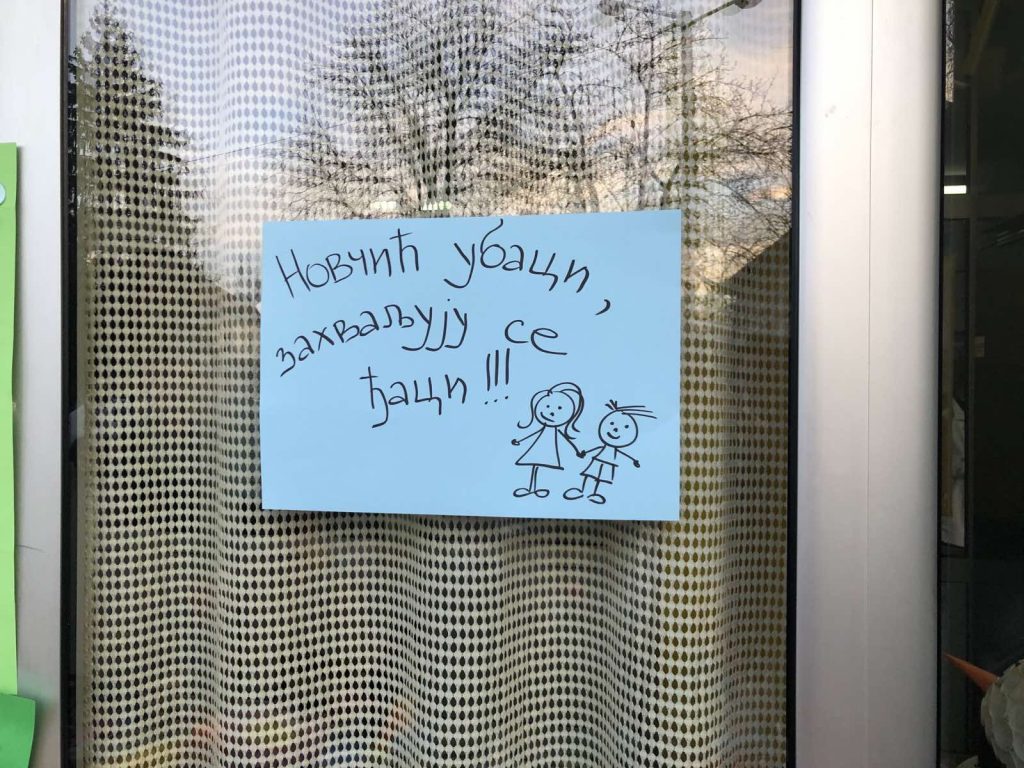 Новчић убаци,
захваљују се
ђаци!!!